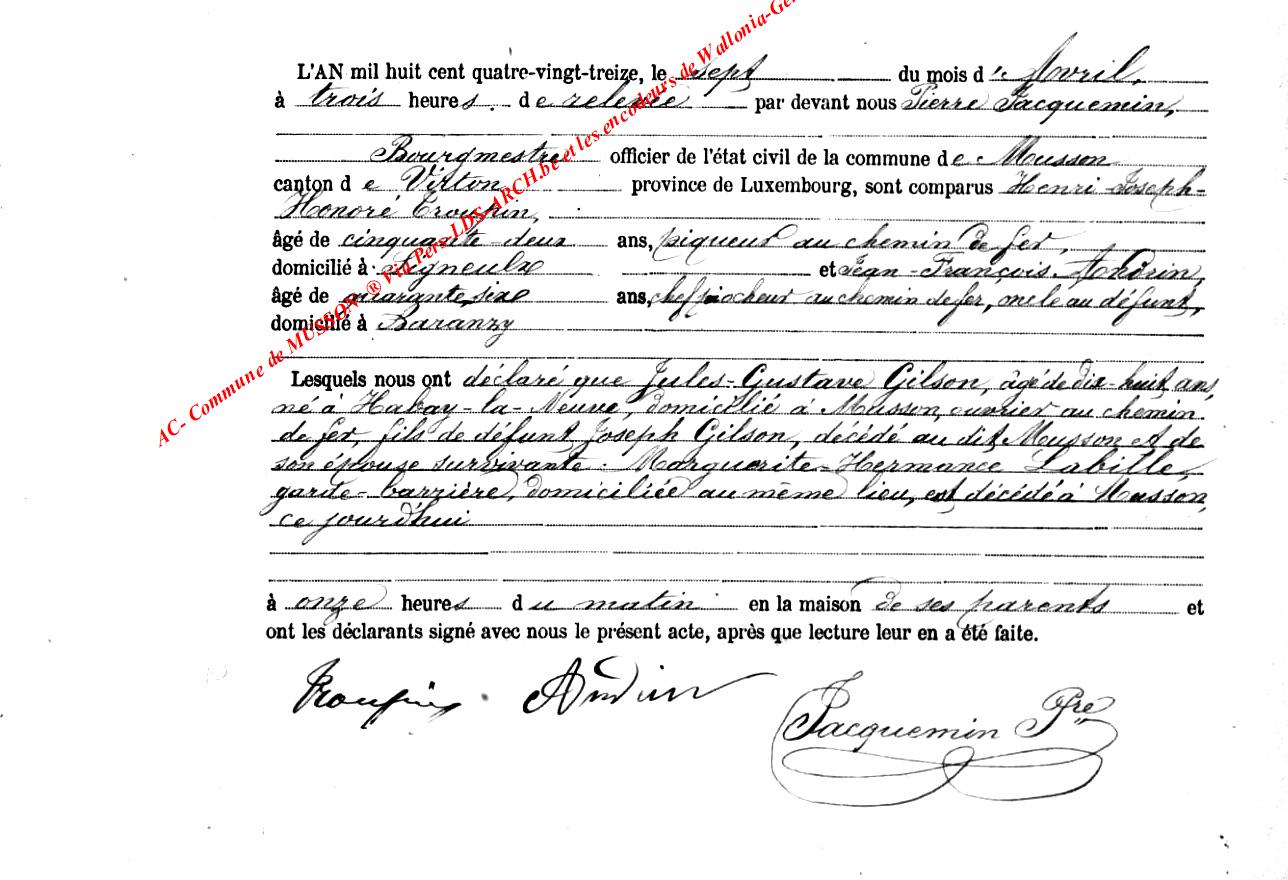 L'AN mil huit cent quatre-vingt-treize, le sept du mois d'Avril,
à trois heures de relevée par devant nous Pierre Jacquemin,
Bourgmestre officier de l'état civil de la commune de Musson
canton de Virton province de Luxembourg, sont comparus Henri-Joseph-
Honoré
âgé de cinquante-deux ans, piqueur au chemin de fer,
domicilié à Signeulx et Jean-François Andrin,
âgé de quarante six ans, chef piocheur au chemin de fer, oncle au défunt,
domicilié à Baranzy
Lesquels nous ont déclaré que Jules-Gustave Gilson, âgé de dix-huit ans,
né à Habay-la-Neuve, domicilié à Musson, ouvrier au chemin
de fer, fils de défunt Joseph Gilson, décédé au dit Musson et de
son épouse survivante Marguerite-Hermance Labille,
garde-barrière, domiciliée au même lieu, est décédé à Musson,
ce jourd'hui
à onze heures du matin en la maison de ses parents et
ont les déclarants signé avec nous le présent acte, après que lecture leur en a été faite.
Andrin
Jacquemin Pre
AC- Commune de MUSSON ® Via Pers-LDS-ARCH.be et les encodeurs de Wallonia-Ge